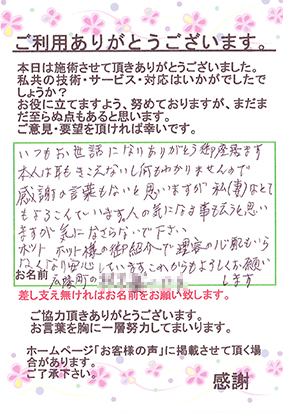 ご利用ありがとうございます。
本日は施術させて頂きありがとうございました。
私共の技術・サービス・対応はいかがでしたで
しょうか？
お役に立てますよう、努めておりますが、まだま
だ至らぬ点もあると思います。
ご意見・要望を頂ければ幸いです。
いつもお世話になりありがとう御座居ます
本人は耳もきこえないし何もわかりませんので
感謝の言葉もないと思いますが 私(妻)はとて
もよろこんでいます 人の気になる事も云うと思い
ますが気になさらないで下さい
ホットホット様の御紹介で理容の心配もいら
なくなり安心しています これからもよろしくお願い
します
お名前 広陵町の
差し支え無ければお名前をお願い致します。
ご協力頂きありがとうございます。
お言葉を胸に一層努力してまいります。
ホームページ「お客様の声」に掲載させて頂く場
合があります。
ご了承下さい。
感謝